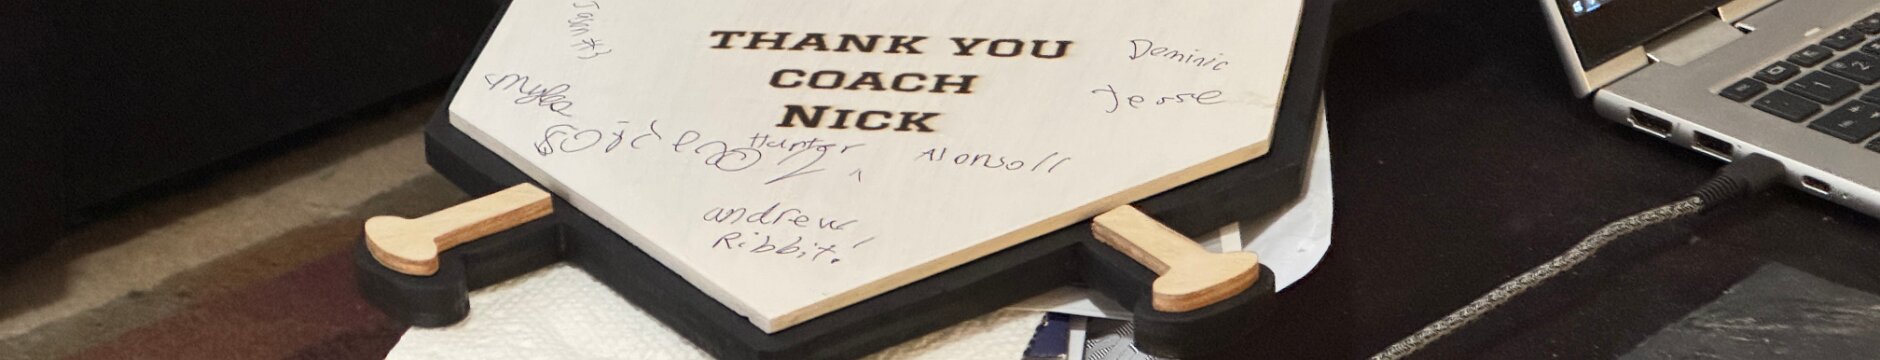 THANK YOU
COACH
NICK
Dominic
Jesse
Myles
Hunter
Alonso 11
andrew!
Ribbit!